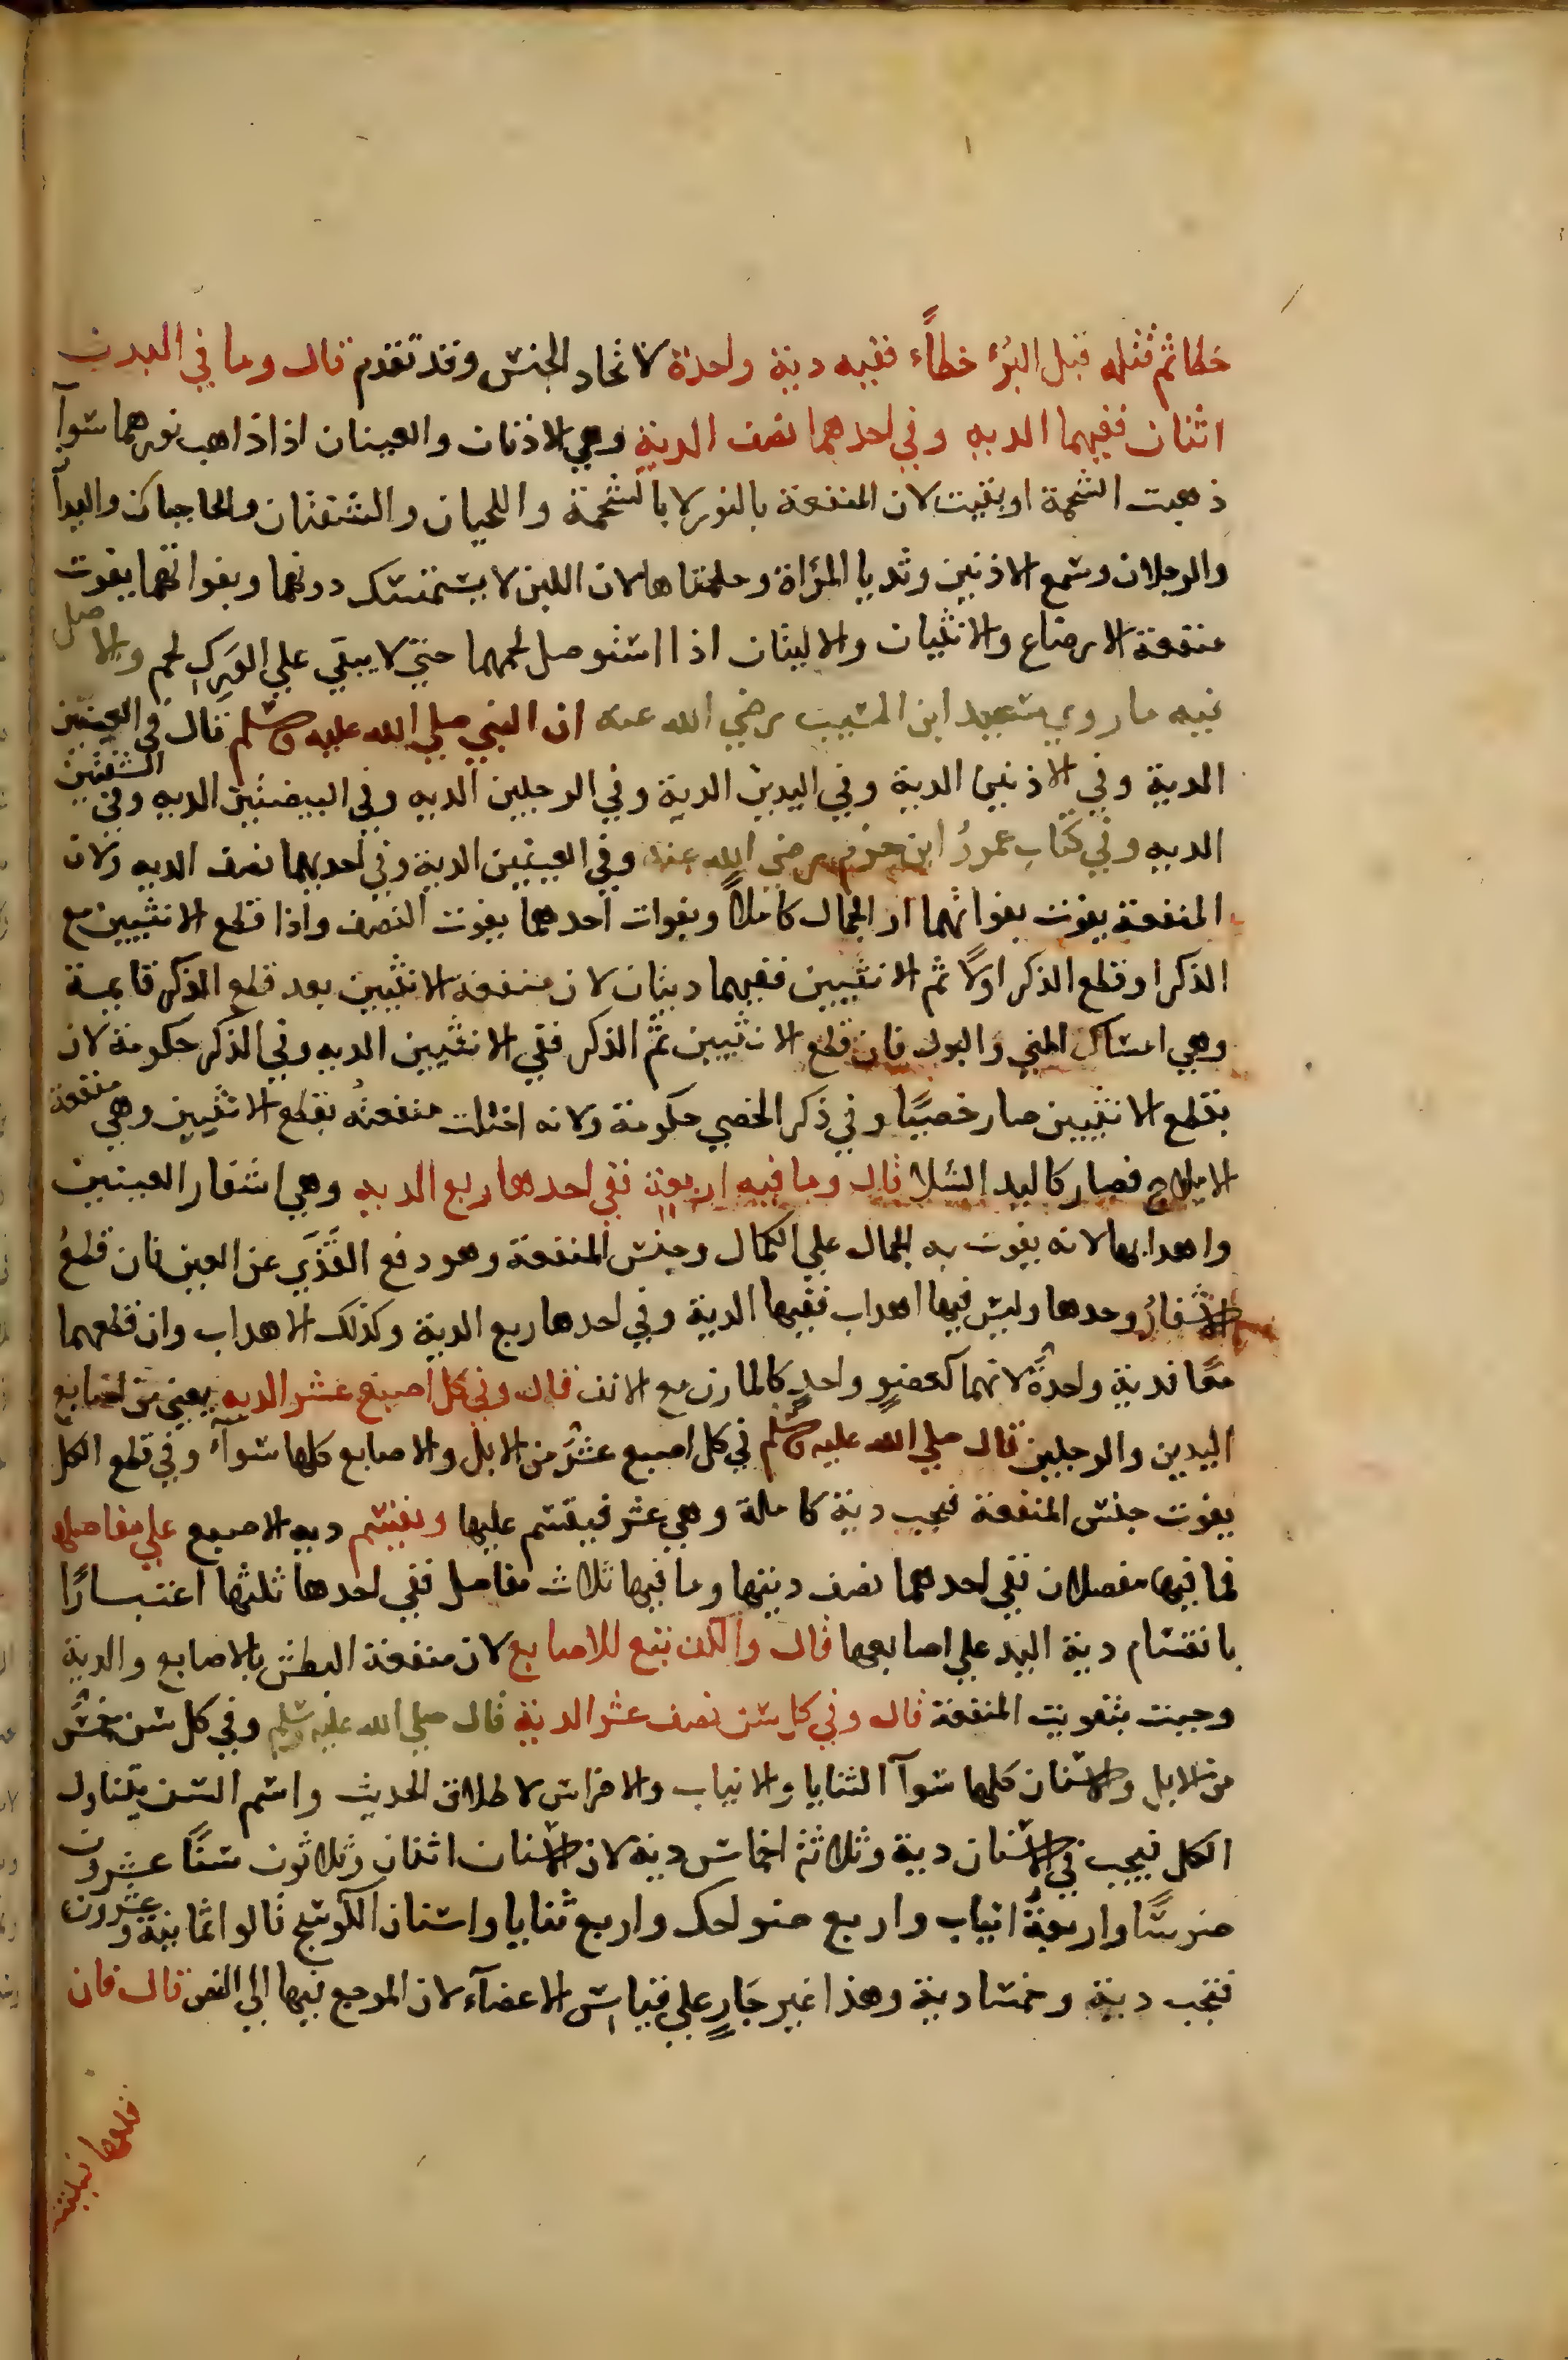 خطا ثم قتله قبل البُرْء خطاًء ففيه دية واحدة لاتحاد الجنس وقد تقدم قال وما في البدن
اثنان ففيهما الديه وفي احدهما نصف الدية وهي الاذنان والعينان اذا ذاهب نورهما سوآ
ذهبت الشحمة او بقيت لان المنفعة بالنور لا بالشحمة واللحيان والشفتان والحاجبان واليدآ
والرجلان وسمع الاذنين وثديا المرأة وحلمتاها لان اللبن لا يستمسك دونهما وبفواتهما يفوت
منفعة الارضاع والانثيان والاليتان اذا استوصل لحمهما حتي لا يبقي علي الوَرِكِ لحم والاصل
فيه ما روي سعيد ابن المسيب رضي الله عنه ان النبي صلي الله عليه وسلم قال في العينين
الدية وفي الاذنين الدية وفي اليدين الدية وفي الرجلين الديه وفي البيضتين الديه وفي الشفتين
الديه وفي كتاب عمروُ ابن حزم رضي الله عنه وفي العينين الدية وفي احديهما نصف الديه ولان
المنفعة يفوت بفواتهما او الجمال كاملاً وبفوات احدهما يفوت النصف واذا قطع الانثيين مع
الذكر او قطع الذكر اولاً ثم الانثيين ففيهما ديتان لان منفعة الانثيين بعد قطع الذكر قايمة
وهي امساك المني والبول فان قطع الانثيين ثم الذكر ففي الانثيين الديه وفي الذكر حكومة لان
بقطع الانثيين صار خصيًا وفي ذكر الخصي حكومة ولانه اختلت منفعتهُ بقطع الانثيين وهي منفعة
الايلاج فصار كاليد الشلا قال وما فيه اربعة ففي احدها ربع الديه وهي اشفار العينين
واهدابها لانه يفوت به الجمال علي الكمال وجنس المنفعة وهو دفع القَذَي عن العين فان قطعُ
الاشفارُ وحدها وليس فيها اهداب ففيها الدية وفي احدها ربع الدية وكذلك الاهداب وان قطعهما
معًا فدية واحدةٌ لانهما كعضوٍ واحدٍ كالمارن مع الانف قال وفي كل اصبع عشر الديه يعني من اصابع
اليدين والرجلين قال صلي الله عليه وسلم في كل اصبع عشْرٌ من الابل والاصابع كلها سوآء وفي قطع الكل
يفوت جنس المنفعة فيجب دية كاملة وهي عشر فيقسم عليها ويقسم ديه الاصبع علي مفاصلها
فما فيها مفصلان ففي احدهما نصف ديتها وما فيها ثلاث مفاصل ففي احدها ثلثها اعتبارًا
بانقسام دية اليد علي اصابعها قال والكف تبع للاصابع لان منفعة البطش بالاصابع والدية
وجبت بتفويت المنفعة قال وفي كل سن نصف عشر الدية قال صلي الله عليه وسلم وفي كل سن خمسٌ
من الابل والاسنان كلها سوآ الثنايا والانياب والاضراس لاطلاق الحديث واسم السن يتناول
الكل فيجب في الاسنان دية وثلاثة اخماس دية لان الاسنان اثنان وثلاثون سنًا عشرون
ضرسًا واربعةٌ انياب واربع ضواحك واربع ثنايا واسنان الكوسج قالوا ثمانية وعشرون
فتجب دية وخمسا دية وهذا غير جَارٍ علي قياس الاعضآء لان المرجع فيها الي النص قال فان
قلعها